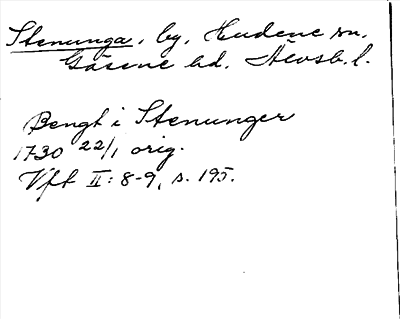 Stenunga, by, Hudene sn.
Gäsene hd. Älvsb. l.
Bengt i Stenunger
1730 22/1 orig.
Vft II: 8-9, s. 195.